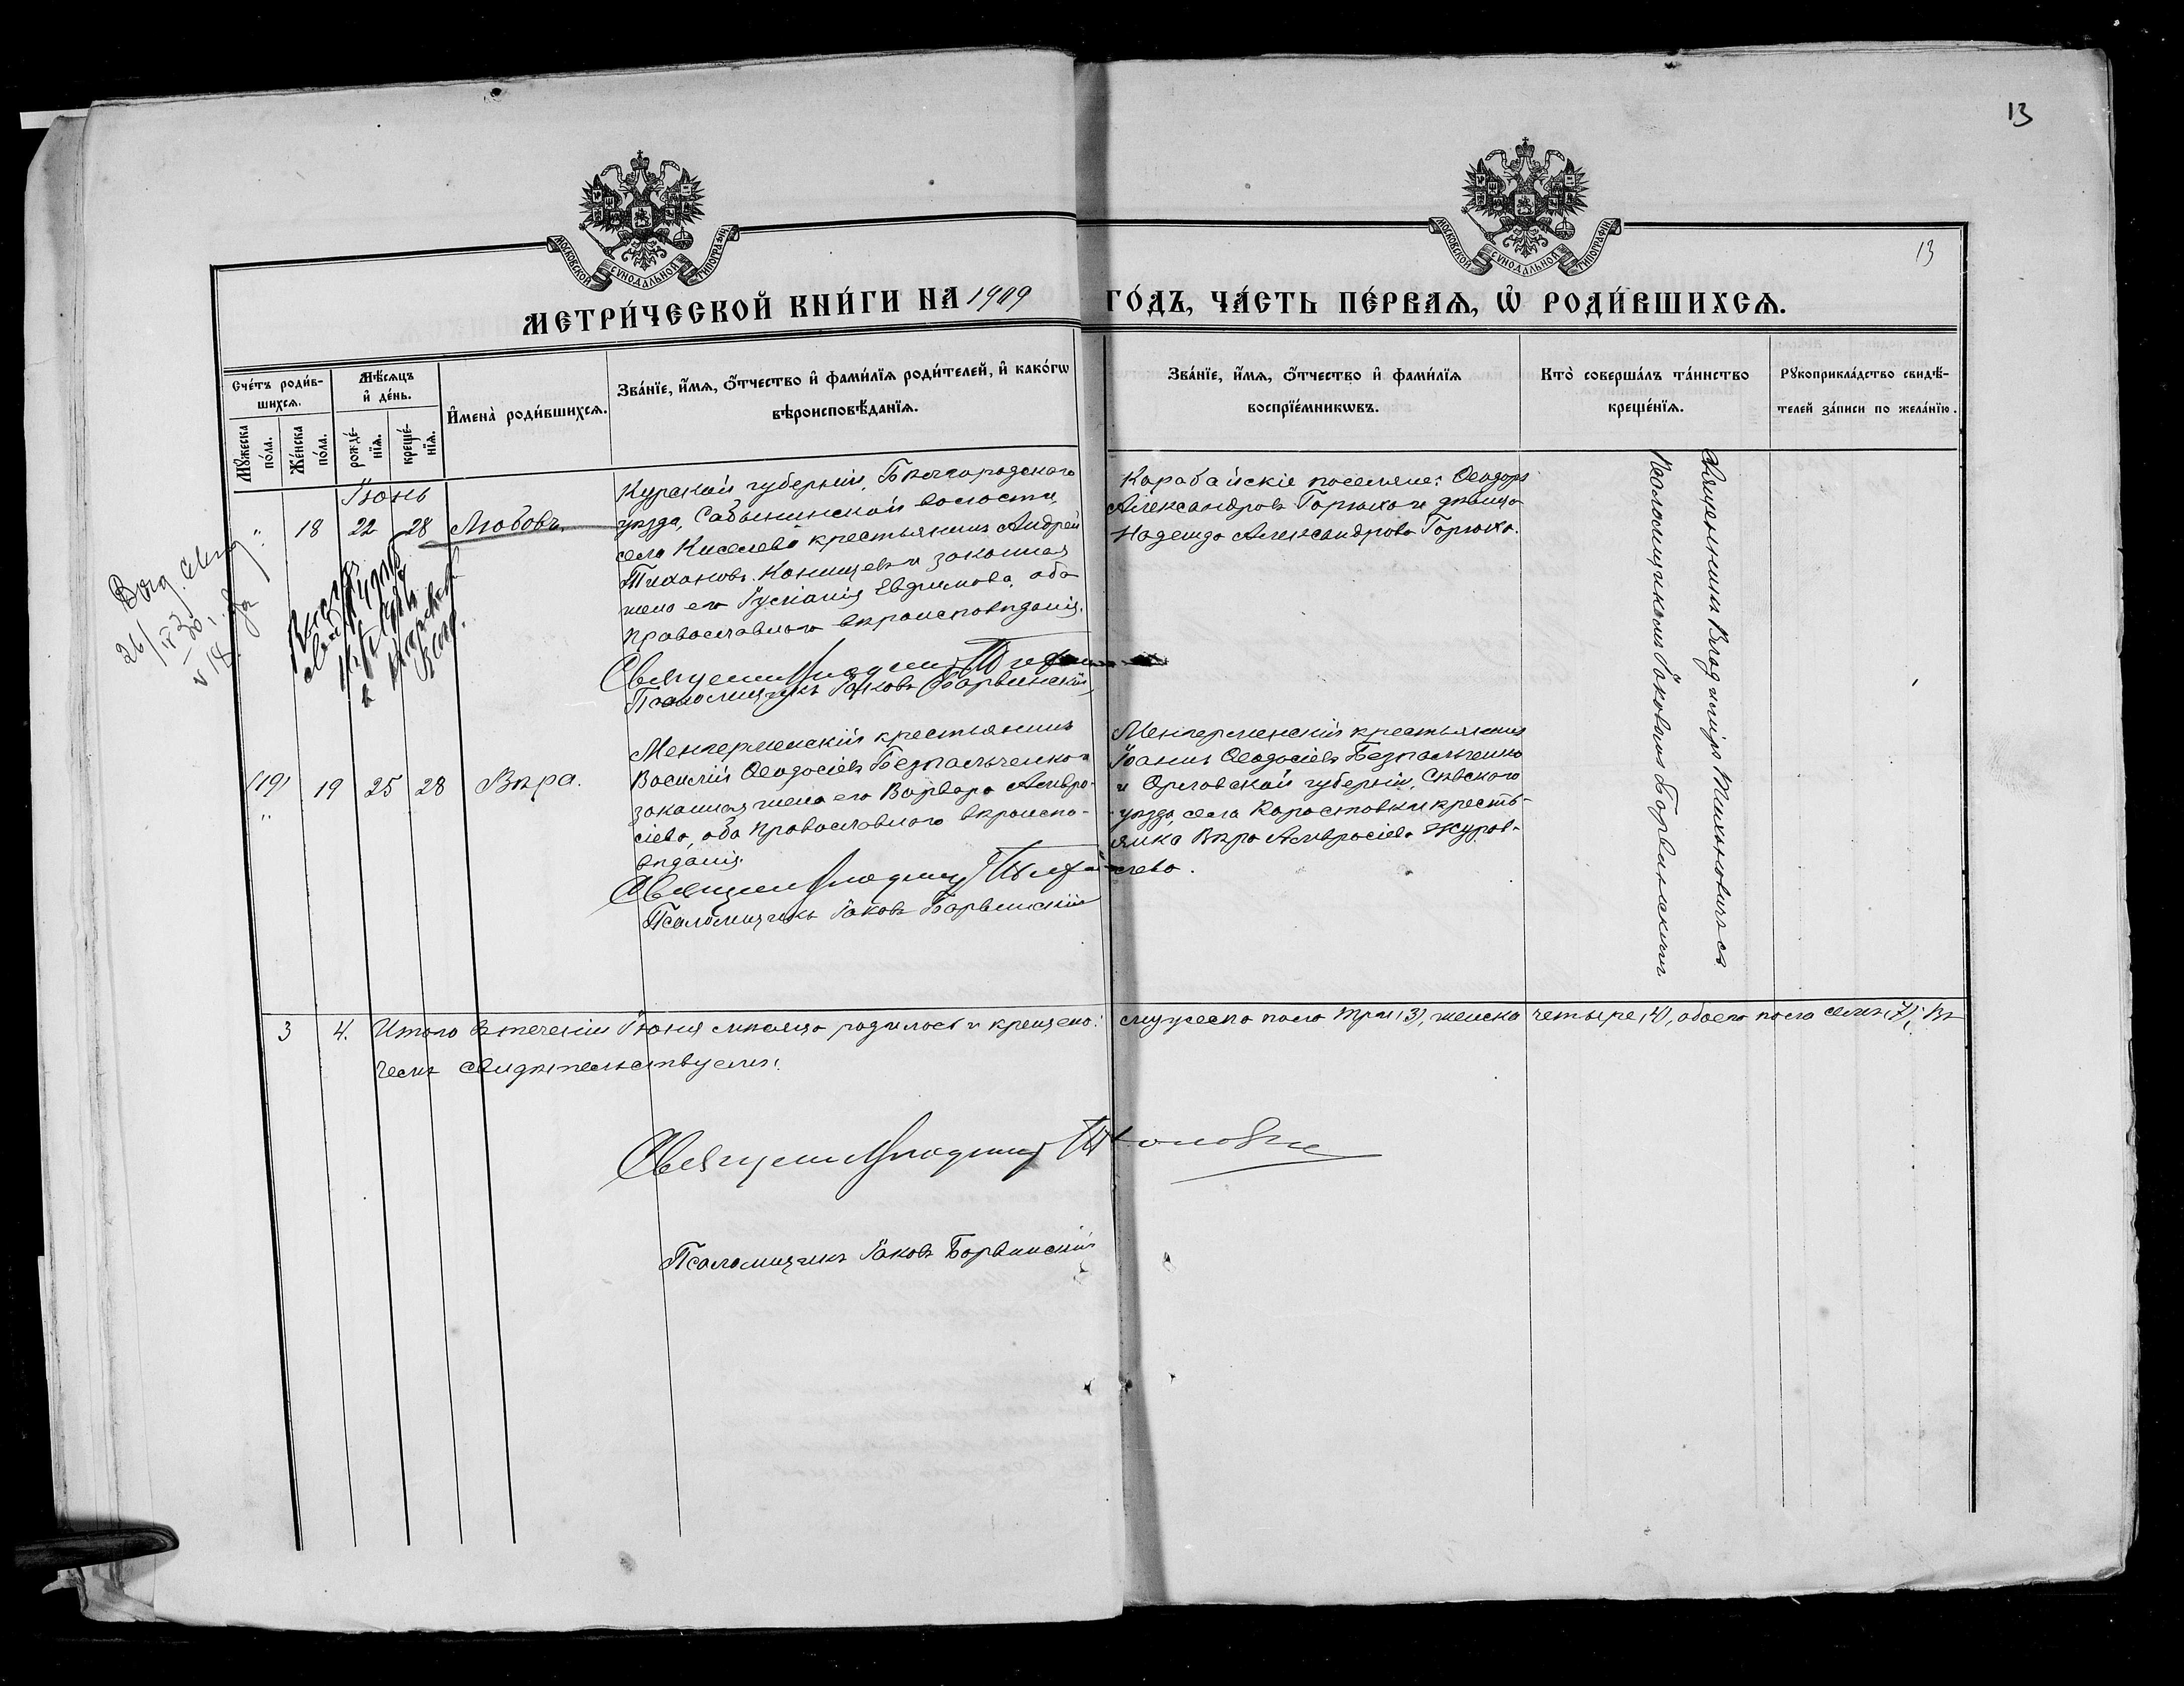 13
13
МОСКОВСКОЙ СУНОДАЛЬНОЙ ТИПОГРАФІИ
МОСКОВСКОЙ СУНОДАЛЬНОЙ ТИПОГРАФІИ
МЕТРИ́ЧЕСКОЙ КНИ́ГИ НА 1909 ГО́ДЪ, ЧА́СТЬ ПЕ́РВАѦ, Ѽ РОДИ́ВШИХСѦ.
Сче́тъ роди́в-
шихсѧ.
Мꙋ́жеска по́ла.
Же́нска по́ла.
Мѣ́сѧцъ и҆ де́нь.
рожде́-нїѧ.
креще́-нїѧ.
И҆мена̀ роди́вшихсѧ.
Зва́нїе, и҆́мѧ, ѻ҆́тчество и҆ фами́лїѧ роди́телей, и҆ како́гѡ
вѣроисповѣ́данїѧ.
Зва́нїе, и҆́мѧ, ѻ҆́тчество и҆ фами́лїѧ
воспрїе́мникѡвъ.
Кто̀ соверша́лъ та́инство
креще́нїѧ.
Рꙋкоприкла́дство свидѣ́-
телей за́писи по жела́нїю.
Іюнь
" 18 22 28 Любовь.
Курской губерніи, Бѣлгородскаго
уѣзда, Сабынинской волости,
села Киселева крестьянинъ Андрей
Тихоновъ Конищевъ и законная
жена его Іустинія Евфимова, оба
православнаго вѣроисповѣданія.
Священникъ Владимір
Псаломщикъ Іаковъ Барвинскій
Карабайскіе поселяне: Ѳеодоръ
Александровъ Горюхо и дѣвица
Надежда Александрова Горюхо.
(19) 19 25 28 Вѣра.
"
Менгерменскій крестьянинъ
Василій Ѳеодосіевъ Безпальченко и
законная жена его Варвара Амвро-
сіева, оба православнаго вѣроиспо-
вѣданія.
Священникъ Владимір
Псаломщикъ Іаковъ Барвинскій
Менгерменскій крестьянинъ
Іоаннъ Ѳеодосіевъ Безпальченко
и Орловской губерніи, Сѣвскаго
уѣзда, села Коростовки кресть-
янка Вѣра Амвросіева Журав-
лева.
Священникъ Владиміръ Тихоновичъ съ
Псаломщикомъ Іаковомъ Барвинскимъ
3 4. Итого въ теченіи Іюня мѣсяца родилось и крещено: мужеска пола три (3), женска четыре (4), обоего пола семь (7); въ
чемъ свидѣтельствуемъ:
Священникъ Владимір
Псаломщикъ Іаковъ Барвинскій